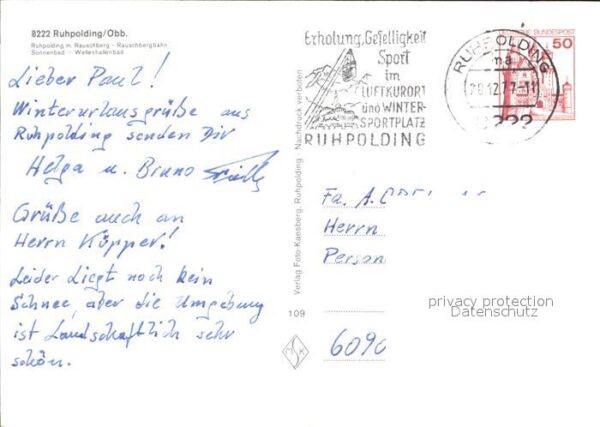 8222 Ruhpolding/Obb.
Ruhpolding m. Rauschberg - Rauschbergbahn
Sonnenbad - Wellenhallenbad
Lieber Paul!
Winterurlausgrüße aus
Ruhpolding senden Dir
Helga u. Bruno
Grüße auch an
Herrn Küpper!
Leider Liegt noch kein
Schnee, aber die Umgebung
ist Landschaftlich sehr
schön.
Verlag Foto-Kaesberg, Ruhpolding · Nachdruck verboten
109
MSK
Erholung, Geselligkeit
Sport
im
LUFTKURORT
und WINTER-
SPORTPLATZ
RUHPOLDING
RUHPOLDING
ma
28.12.77-11
8222
DEUTSCHE BUNDESPOST
50
Fa. A.
Herrn
Person
6090
privacy protection
Datenschutz